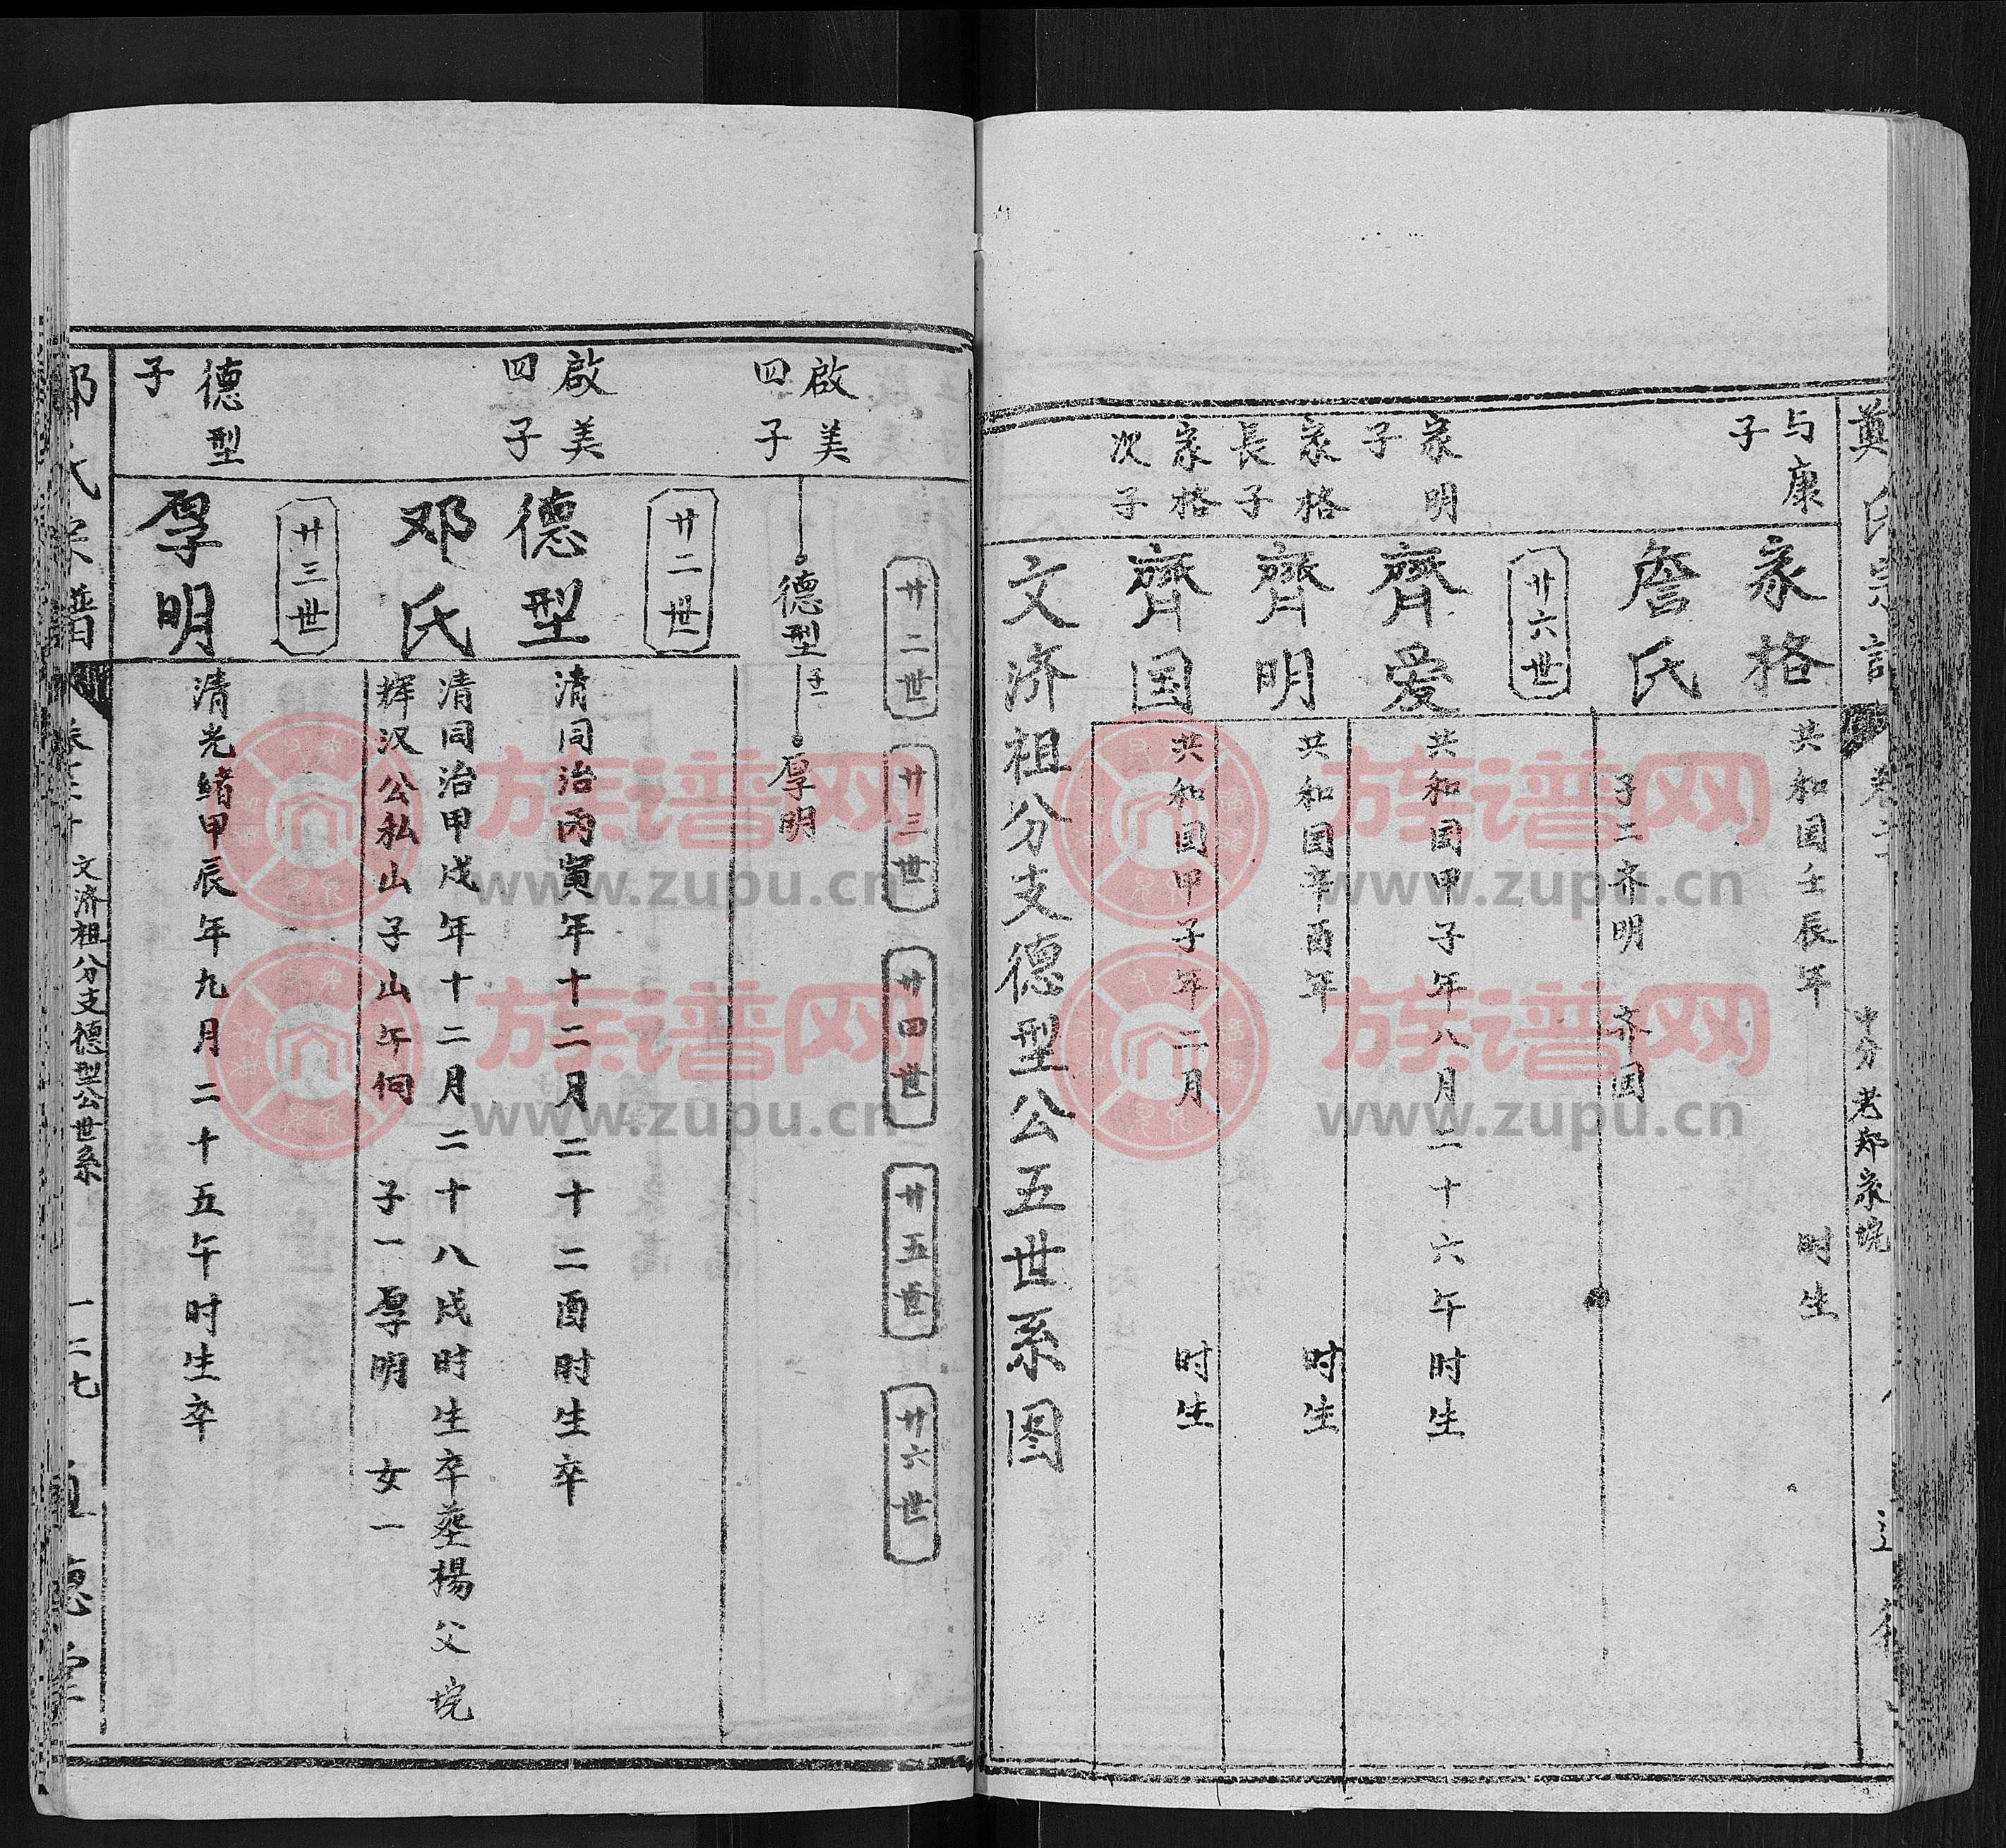 与康
子
家格
共和国壬辰年 时生
詹氏
子二齐明 齐国
廿六世
家明
子
齊爱
共和国甲子年八月二十六午时生
家格
長子
齊明
共和国辛酉年 时生
家格
次子
齊国
共和国甲子年二月 时生
文济祖分支德型公五世系图
廿二世 廿三世 廿四世 廿五世 廿六世
啟美
四子
德型 子一 厚明
廿二世
啟美
四子
德型
清同治丙寅年十二月二十二酉时生卒
邓氏
清同治甲戌年十二月二十八戌时生卒墓楊父垸
辉汉公私山子山午向 子一厚明 女一
廿三世
德型
子
厚明
清光绪甲辰年九月二十五午时生卒
文济祖八分支德型公世系
一二七
族谱网
www.zupu.cn
族谱网
www.zupu.cn
族谱网
www.zupu.cn
族谱网
www.zupu.cn